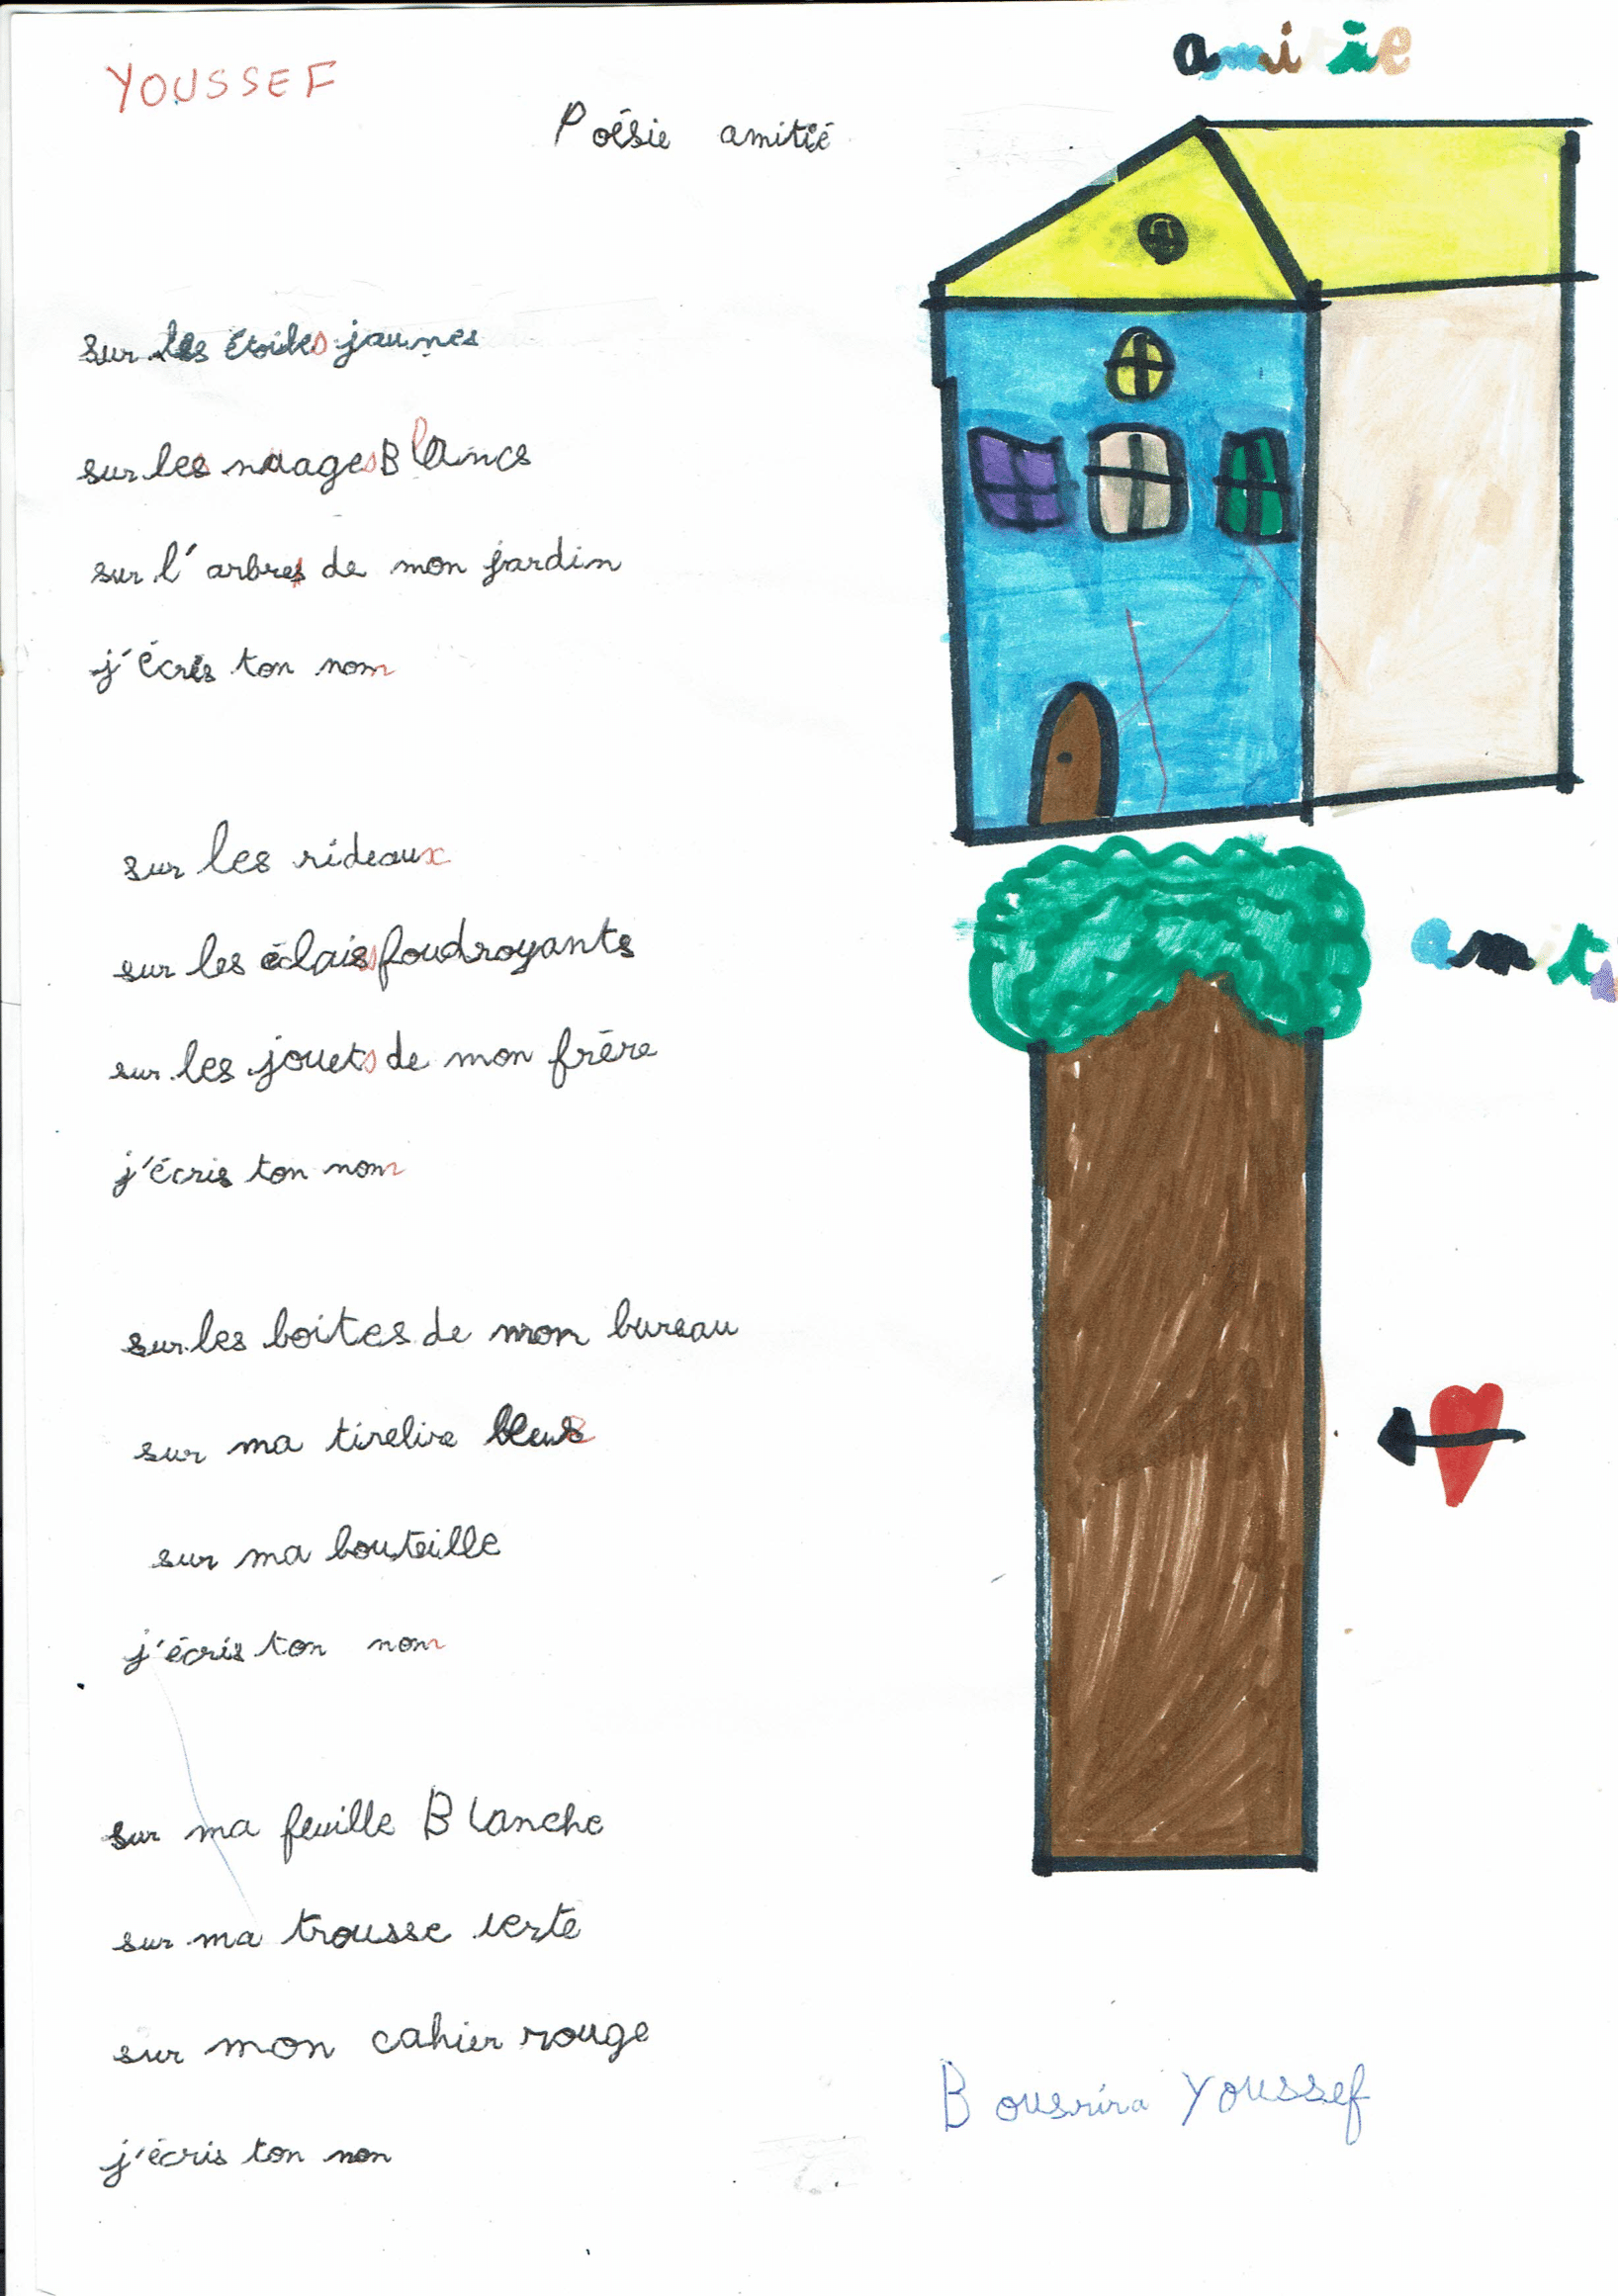 YOUSSEF
amitie
Poésie amitié
sur les étoiles jaunes
sur les nuages Blancs
sur l'arbres de mon jardin
j'écris ton nom
sur les rideaux
sur les éclaiss foudroyants
amiti
sur les jouets de mon frère
j'écris ton nom
sur les boites de mon bureau
sur ma tirelire
sur ma bouteille
j'écris ton nom
sur ma feuille Blanche
sur ma trousse verte
sur mon cahier rouge
Bousrira Youssef
j'écris ton non